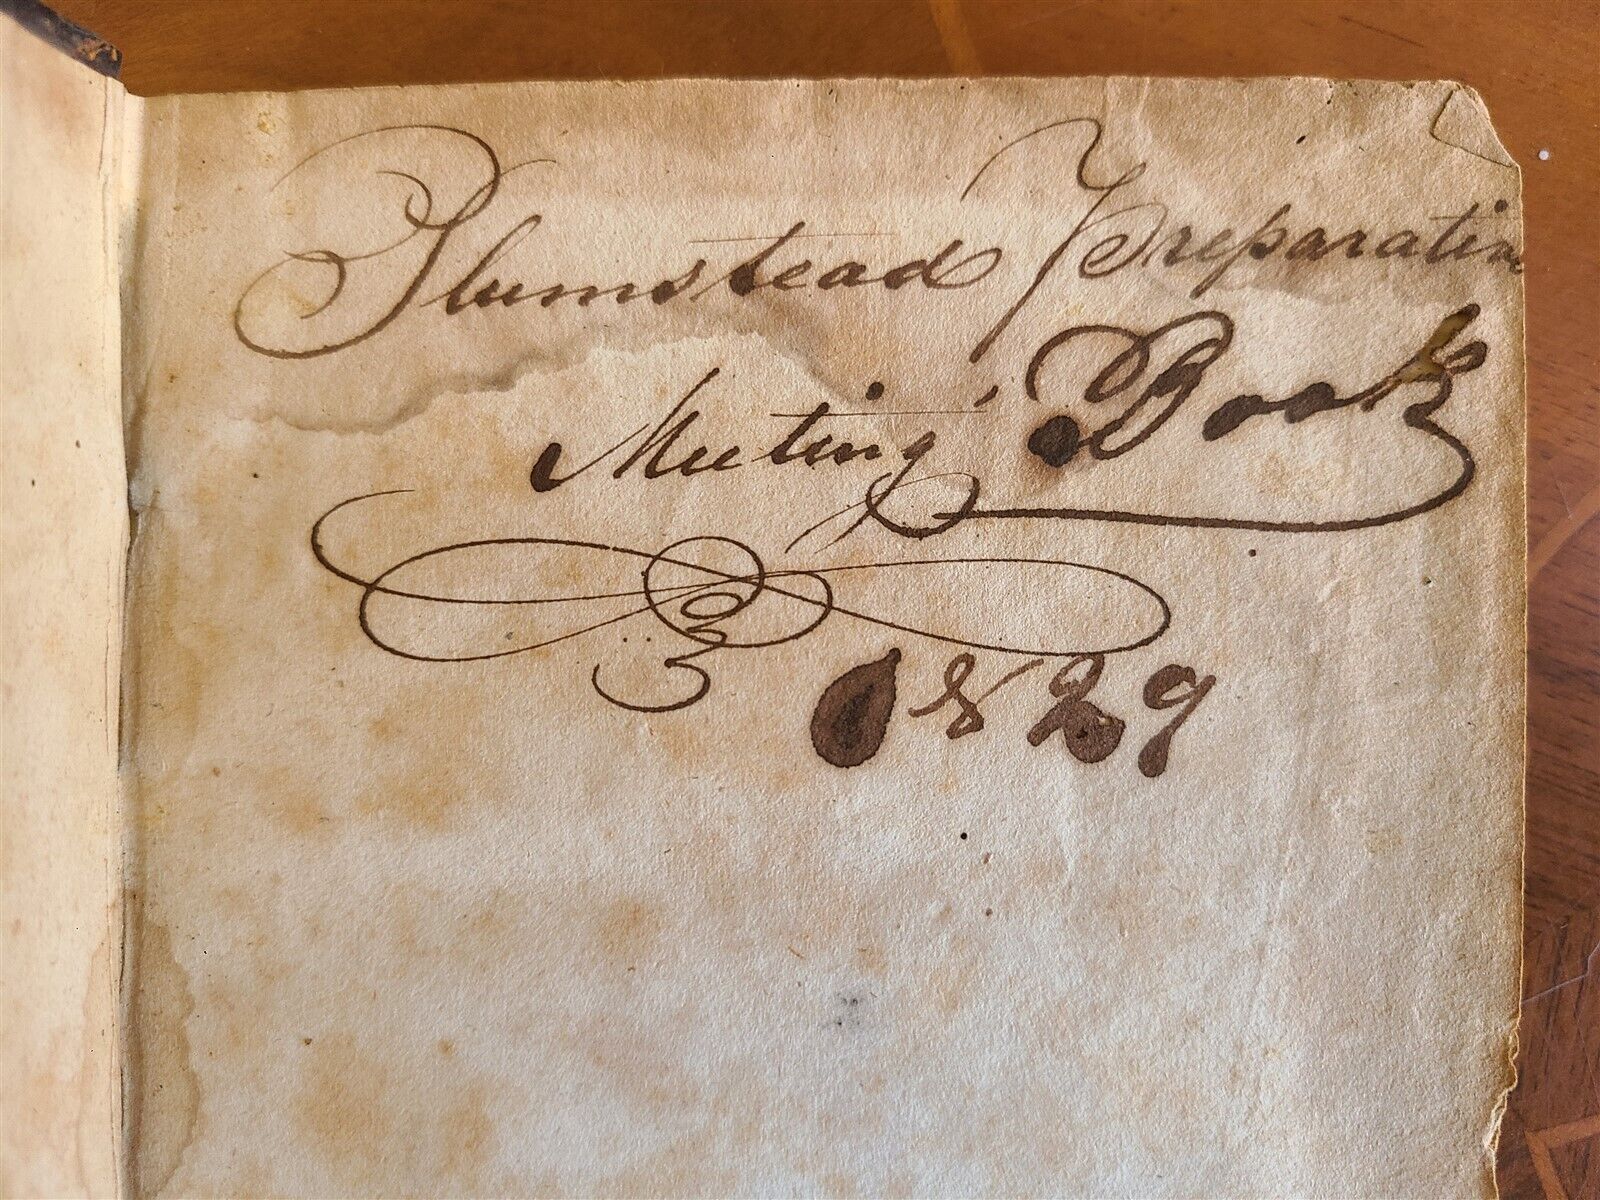 Plumstead Preparative
Meeting Book
1829